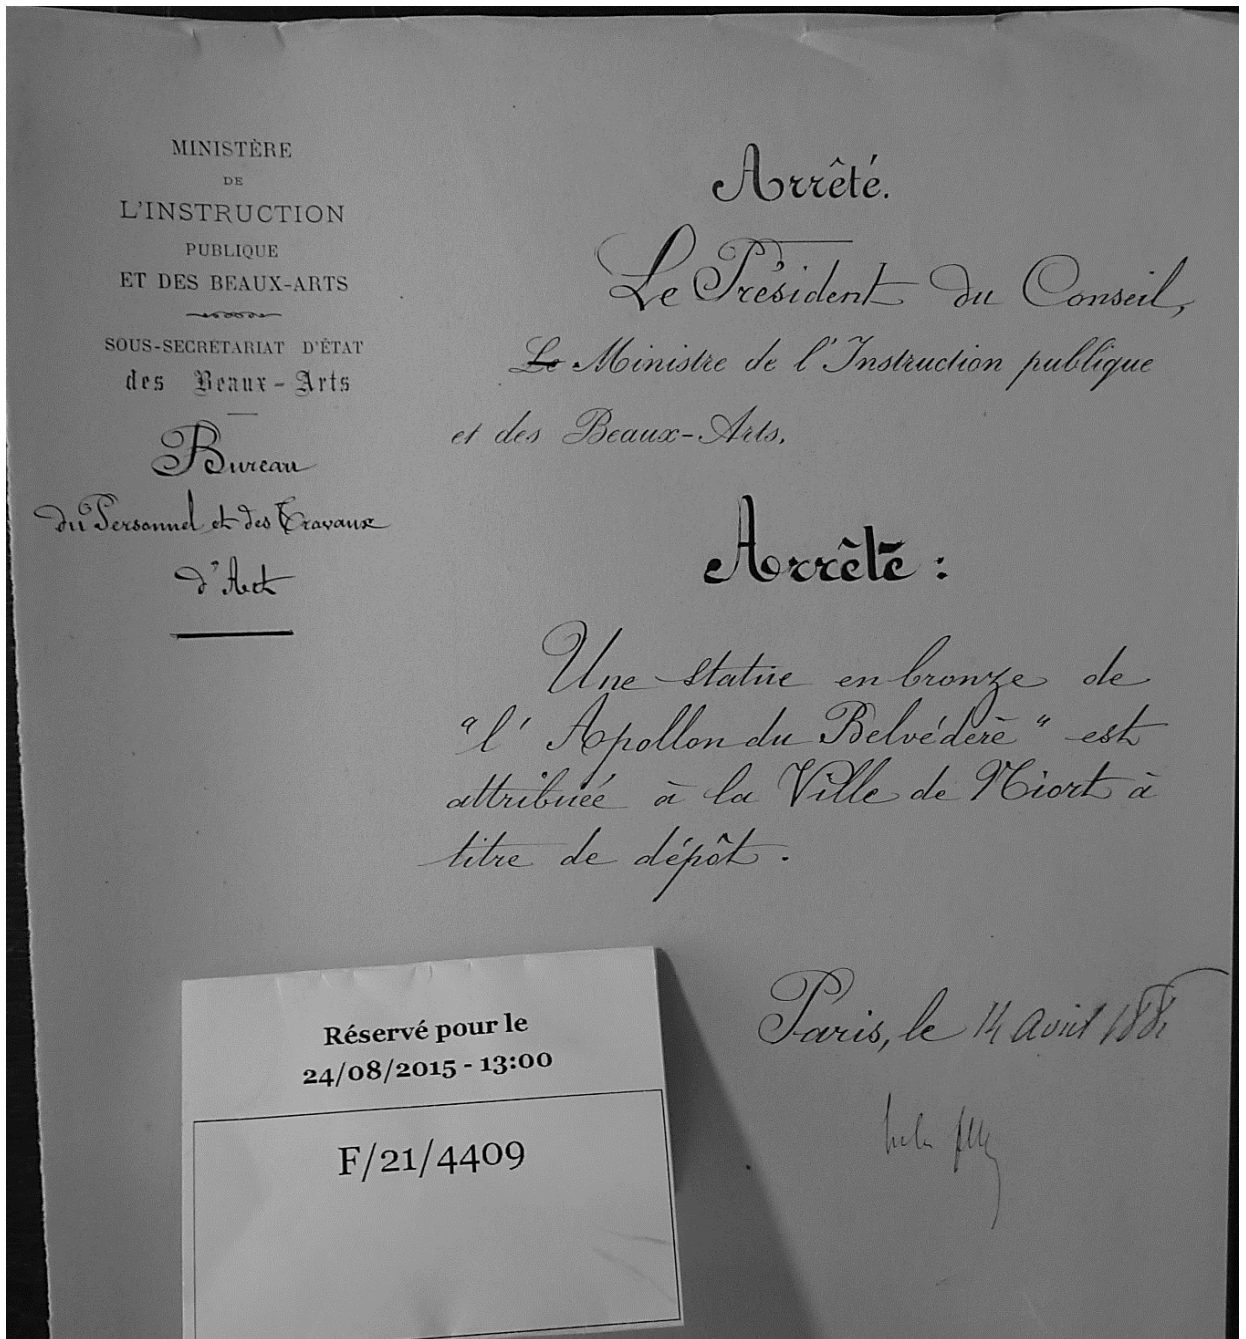 MINISTÈRE
DE
L'INSTRUCTION
PUBLIQUE
ET DES BEAUX-ARTS
SOUS-SECRETARIAT D'ÉTAT
des Beaux-Arts
Bureau
du Personnel et des Travaux
d'Art
Arrêté.
Le Président du Conseil,
Le Ministre de l'Instruction publique
et des Beaux-Arts,
Arrête :
Une statue en bronze de
"l'Apollon du Belvédère" est
attribuée à la Ville de Niort à
titre de dépôt.
Paris, le 14 avril 1881
Réservé pour le
24/08/2015 - 13:00
F/21/4409